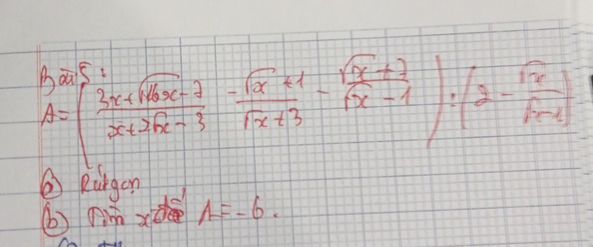 Bài 5:
A = ( (3x + √16x - 7)/(x + 2√x - 3) - (√x + 1)/(√x + 3) - (√x + 7)/(√x - 1) ) : ( 2 - √x/(√x - 1) )
a) Rút gọn
b) Tìm x để A = -6.